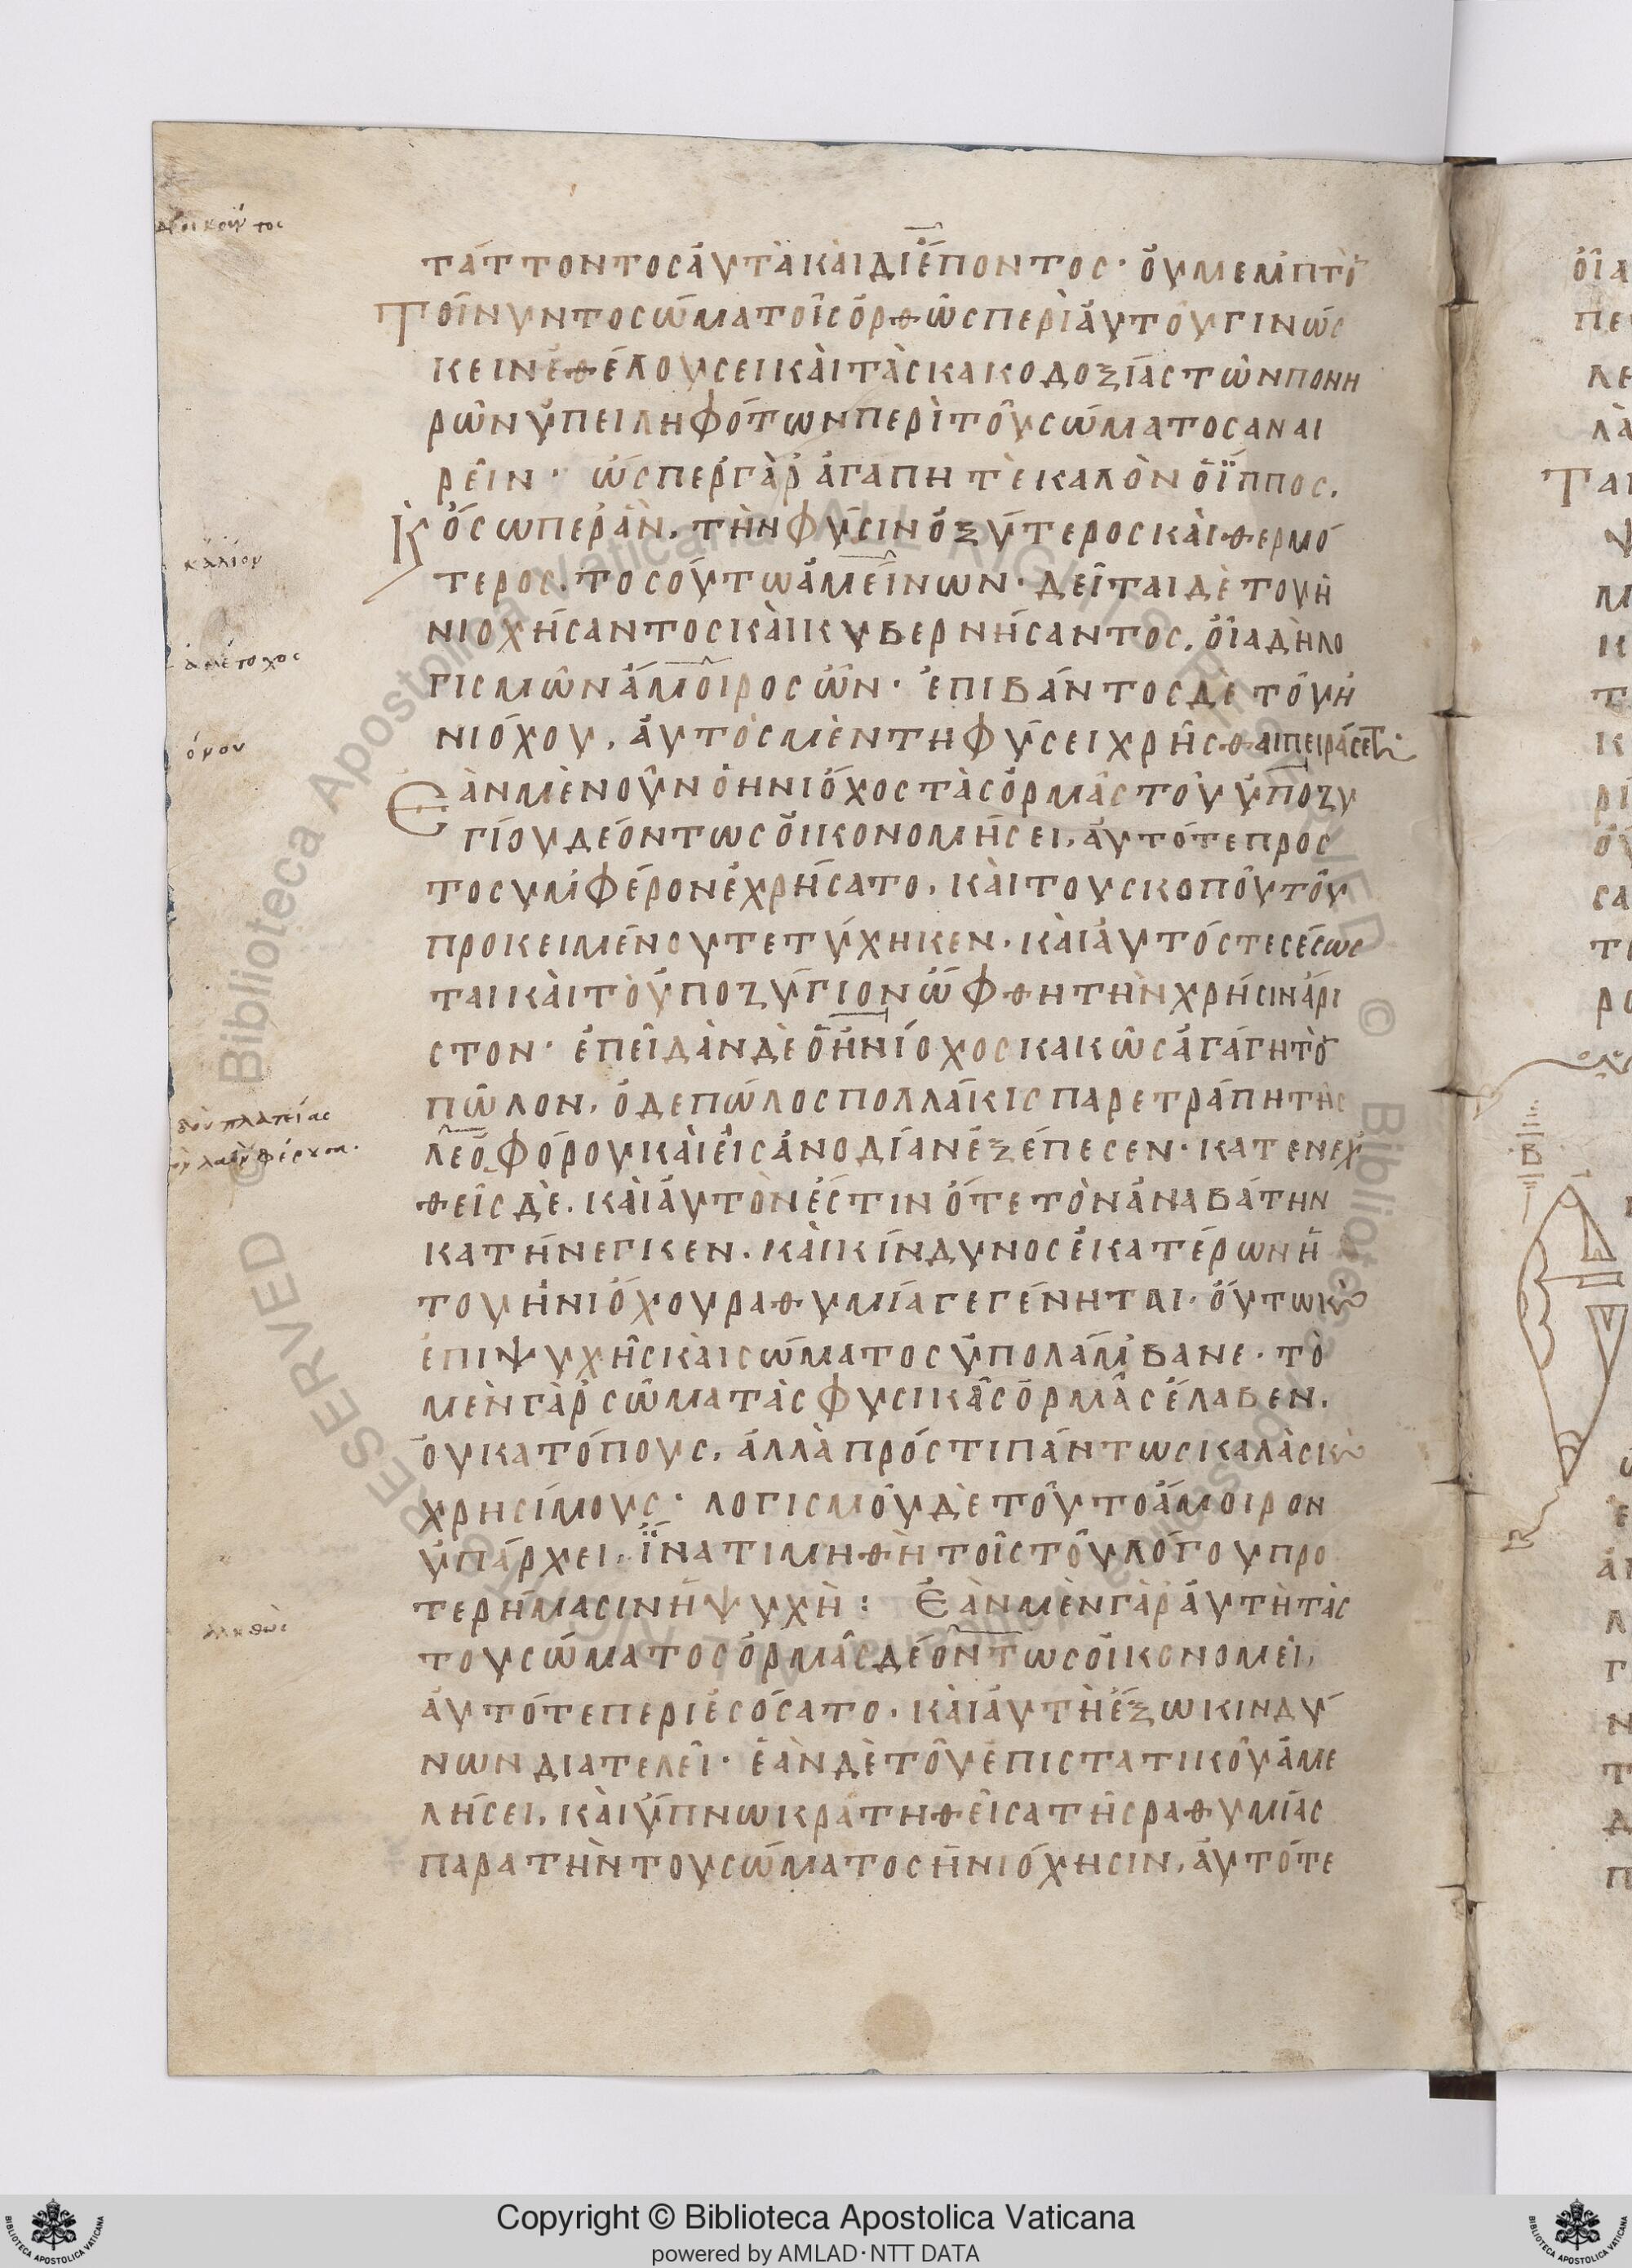 τάττοντος ἀυτὰ καὶ διέποντος· ὀυ μεμπτὸ
Τοίνυν τὸ σῶμα τοῖς ὀρθῶς περὶ ἀυτοῦ γινώς
κειν ἐθέλουσει καὶ τὰς κακοδοξίας τῶν πονη
ρῶν ὑπειληφότων περὶ τοῦ σώματος αναι
ρεῖν· ὥσπερ γὰρ ἀγαπητὲ καλὸν ὁ ἵππος.
κ ὅσωπερ ἂν, τὴν φύσιν ὀξύτερος καὶ θερμό
τερος, τοσούτω ἀμείνων· δεῖται δὲ του ἡ
νιοχήσαντος καὶ κυβερνήσαντος, ὅια δὴ λο
γισμῶν ἄμοιρος ὤν· ἐπιβάντος δὲ τοῦ ἡ
νιόχου, ἀυτὸς μὲν τη φύσει χρῆσθαι πειράσεται·
Ἐὰν μὲν οὖν ὁ ἡνιόχος τὰς ὁρμὰς τοῦ ὑποζυ
γίου δεόντως ὀικονομήσει, ἀυτό τε προς
το συμφέρον ἐχρήσατο, καὶ του σκοποῦ τοῦ
προκειμένου τετύχηκεν· καὶ ἀυτός τε σέσως
ται καὶ τὸ ὑποζύγιον ὤφθη τὴν χρήσιν ἄρι
στον· ἐπειδὰν δὲ ὁ ἡνίοχος κακῶς ἀγάγη τὸ
πῶλον, ὁ δε πώλος πολλάκις παρετράπη τῆς
λεοφόρου καὶ εἰς ἀνοδίαν ἐξέπεσεν· κατενεχ
θεὶς δὲ, καὶ ἀυτὸν ἔστιν ὅτε τὸν ἀναβάτην
κατήνεγκεν. καὶ κίνδυνος ἑκατέρων ἡ
του ἡνιόχου ραθυμία γεγένηται· ὅυτω καὶ
ἐπι ψυχῆς καὶ σώματος ὑπολάμβανε· τὸ
μὲν γὰρ σῶμα τὰς φυσικὰς ὁρμὰς ἔλαβεν,
ὀυκ ατόπους, ἀλλὰ πρός τι πάντως καλὰς καὶ
χρησίμους· λογισμοῦ δὲ τοῦτο ἄμοιρον
ὑπάρχει, ἵνα τιμηθὴ τοῖς τοῦ λόγου προ
τερήμασιν ἡ ψυχὴ: Ἐὰν μὲν γὰρ ἀυτὴ τὰς
του σώματος ὁρμὰς δεόντως ὀικονομεῖ,
ἀυτό τε περιέσόσατο, καὶ ἀυτὴ ἔξω κινδύ
νων διατελεῖ· ἐὰν δὲ τοῦ ἐπιστατικοῦ ἀμε
λήσει, καὶ ὕπνω κρατηθεῖσα της ραθυμίας
παρα τὴν του σώματος ἡνιόχησιν, ἀυτό τε
διοικοῦντος
κάλιον
ἀμέτοχος
ὅμου
τὸν πλατείας
ἀληθῶς
Copyright © Biblioteca Apostolica Vaticana
powered by AMLAD·NTT DATA